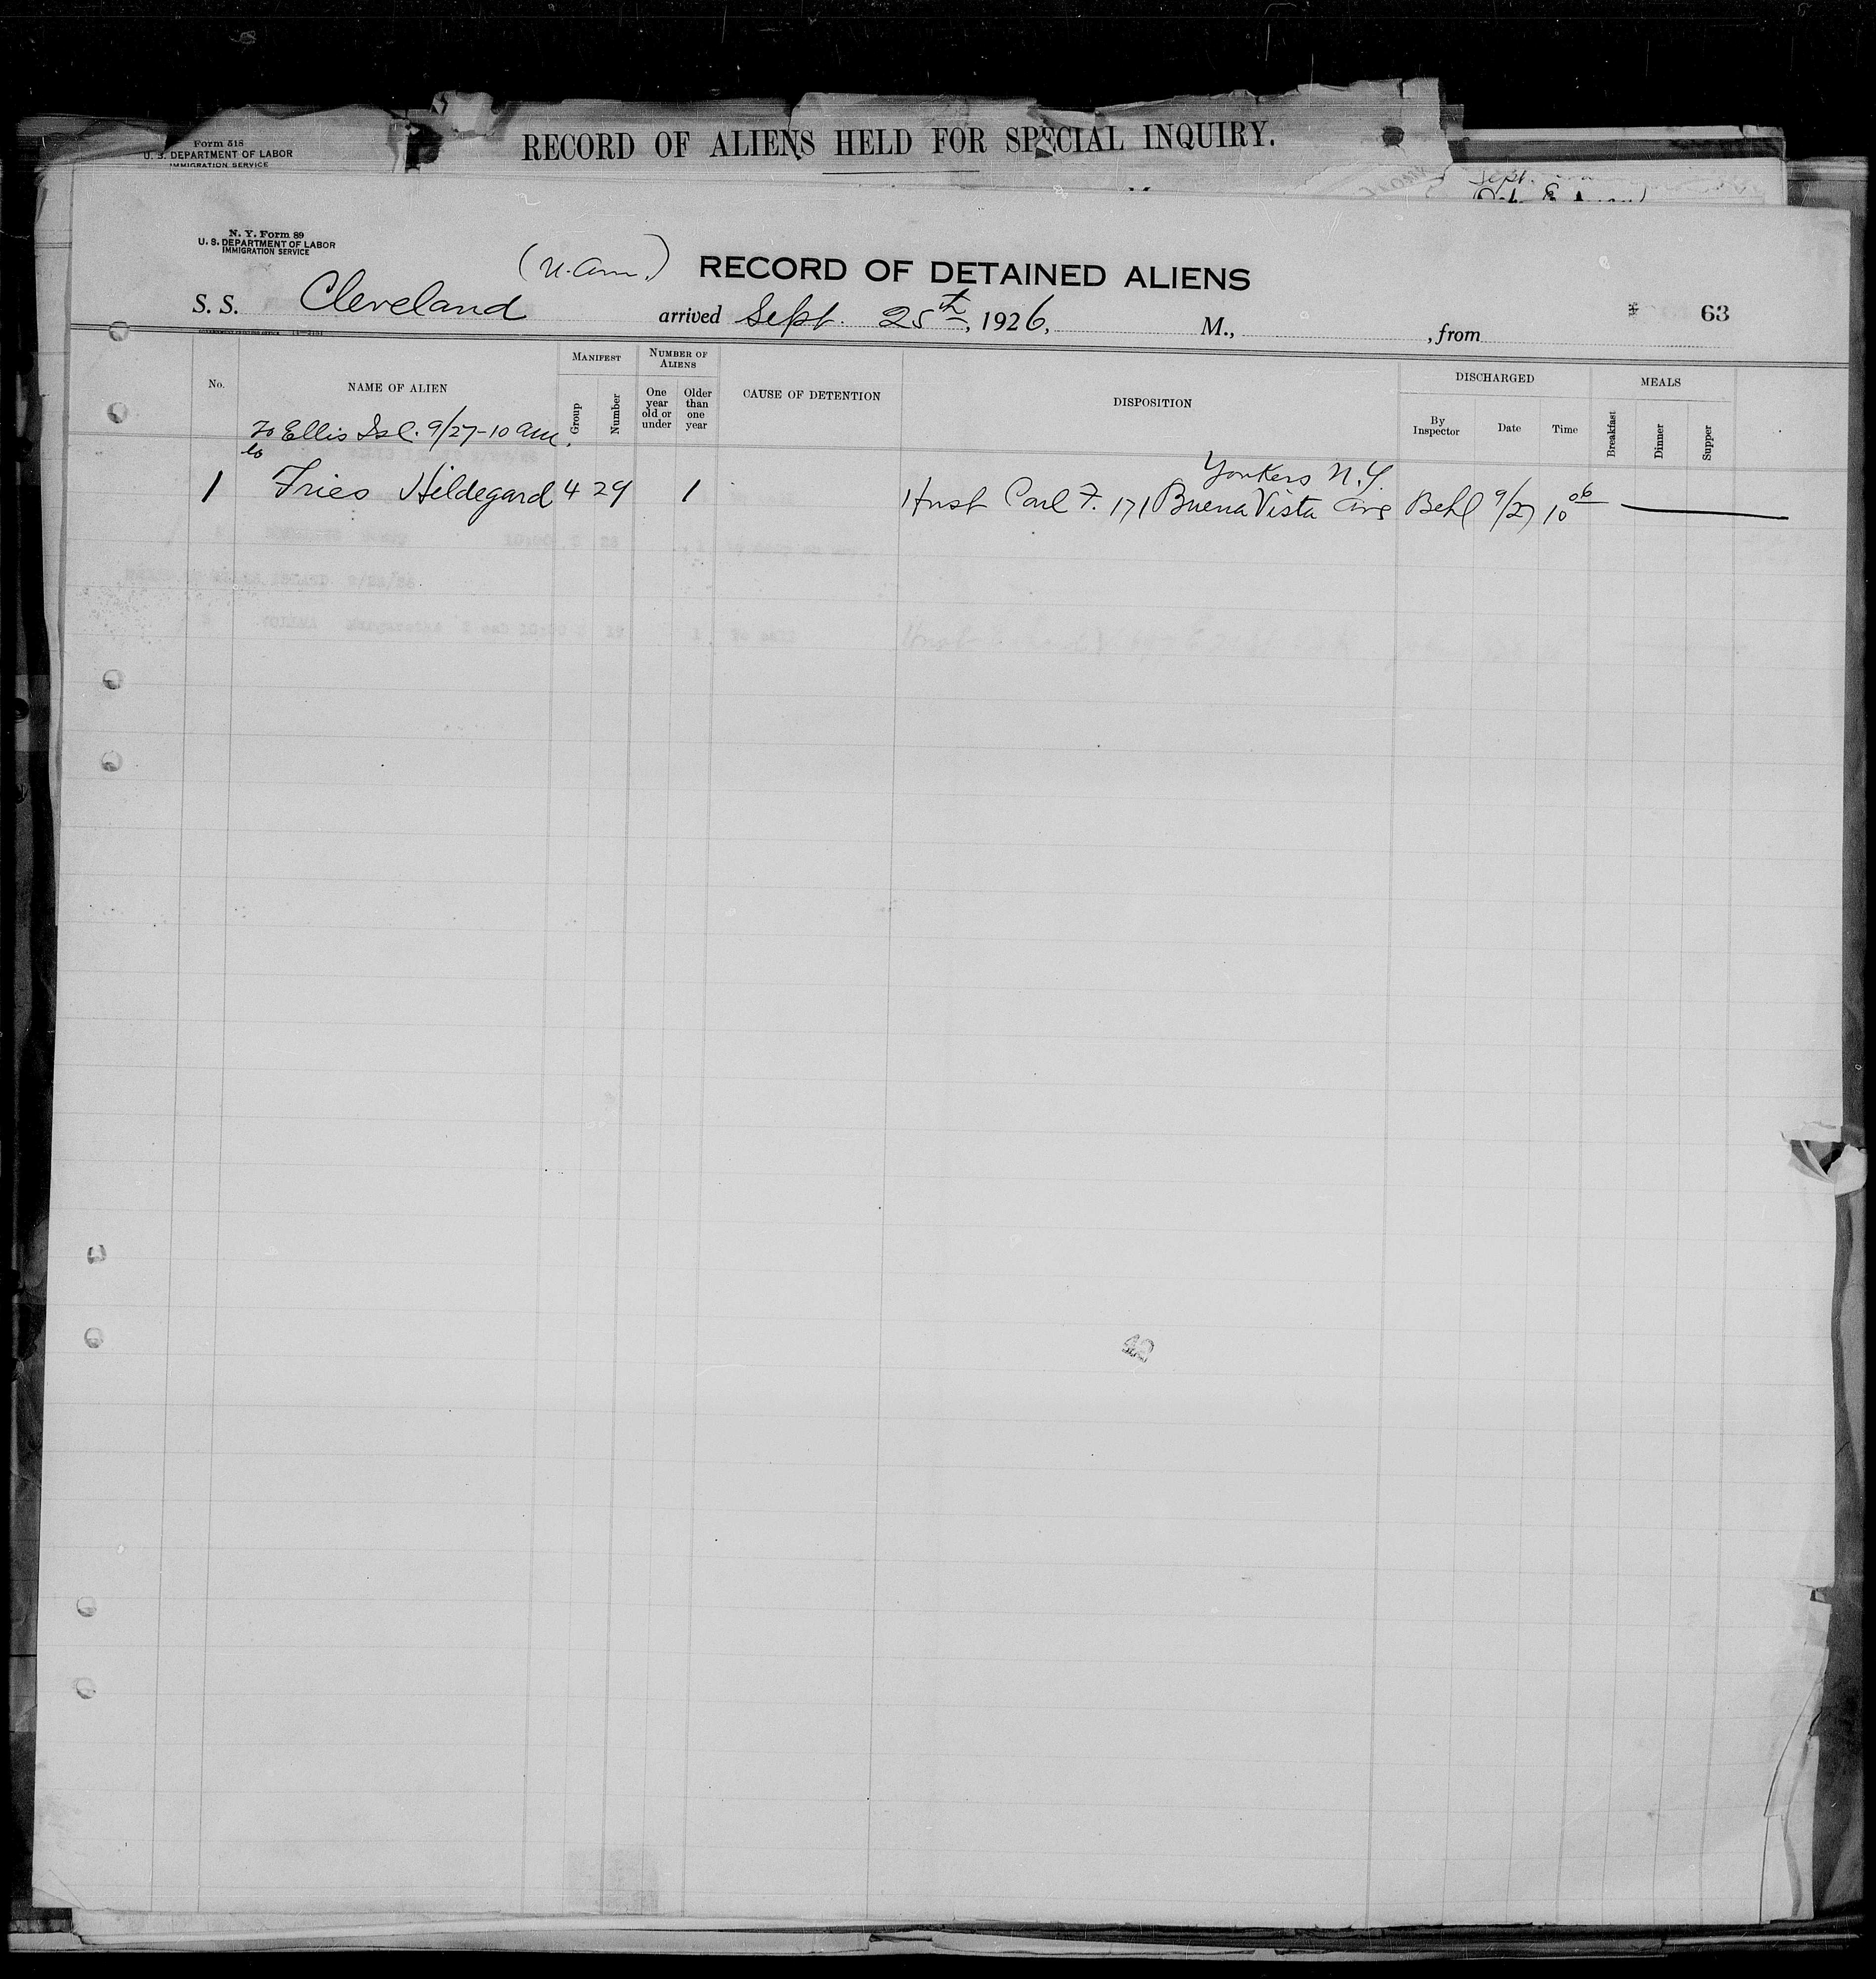 Form 518
U. S. DEPARTMENT OF LABOR
IMMIGRATION SERVICE
RECORD OF ALIENS HELD FOR SPECIAL INQUIRY.
Sept.
N. Y. Form 89
U. S. DEPARTMENT OF LABOR
IMMIGRATION SERVICE
(U. Am.) RECORD OF DETAINED ALIENS
S. S. Cleveland arrived Sept. 25th, 1926, M., , from 63
No. NAME OF ALIEN MANIFEST Group Number NUMBER OF ALIENS One year old or under Older than one year CAUSE OF DETENTION DISPOSITION DISCHARGED By Inspector Date Time MEALS Breakfast Dinner Supper
To Ellis Isl. 9/27-10 am.
Yonkers N.Y.
1 Fries Hildegard 4 29 1 Husb Carl F. 171 Buena Vista Ave Behl 9/27 10 06